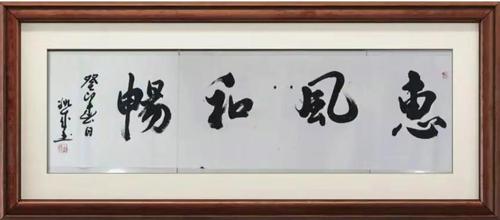 惠风和暢
癸卯春日